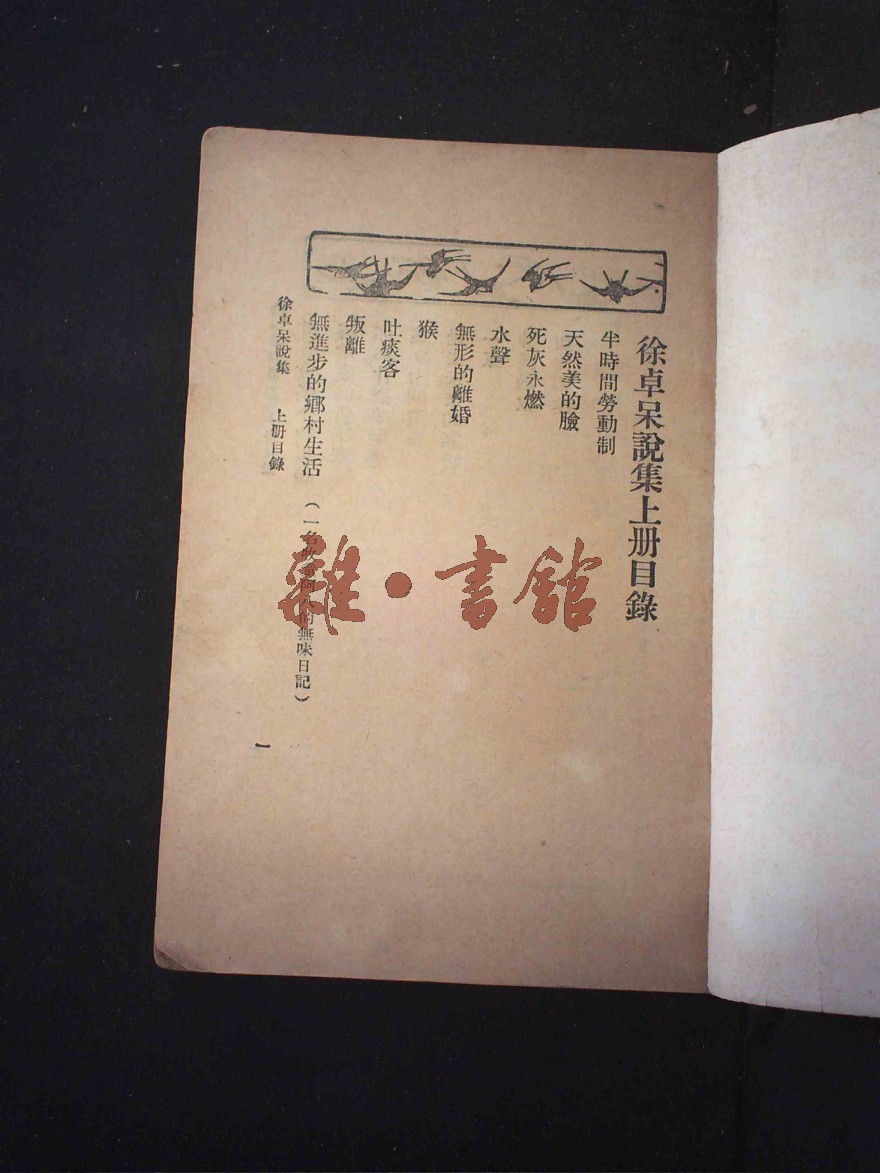 徐卓呆說集上册目錄
半時間勞動制
天然美的臉
死灰永燃
水聲
無形的離婚
猴
吐痰客
叛離
無進步的鄉村生活(一名 的無味日記)
徐卓呆說集 上册目錄
一
雜·書館